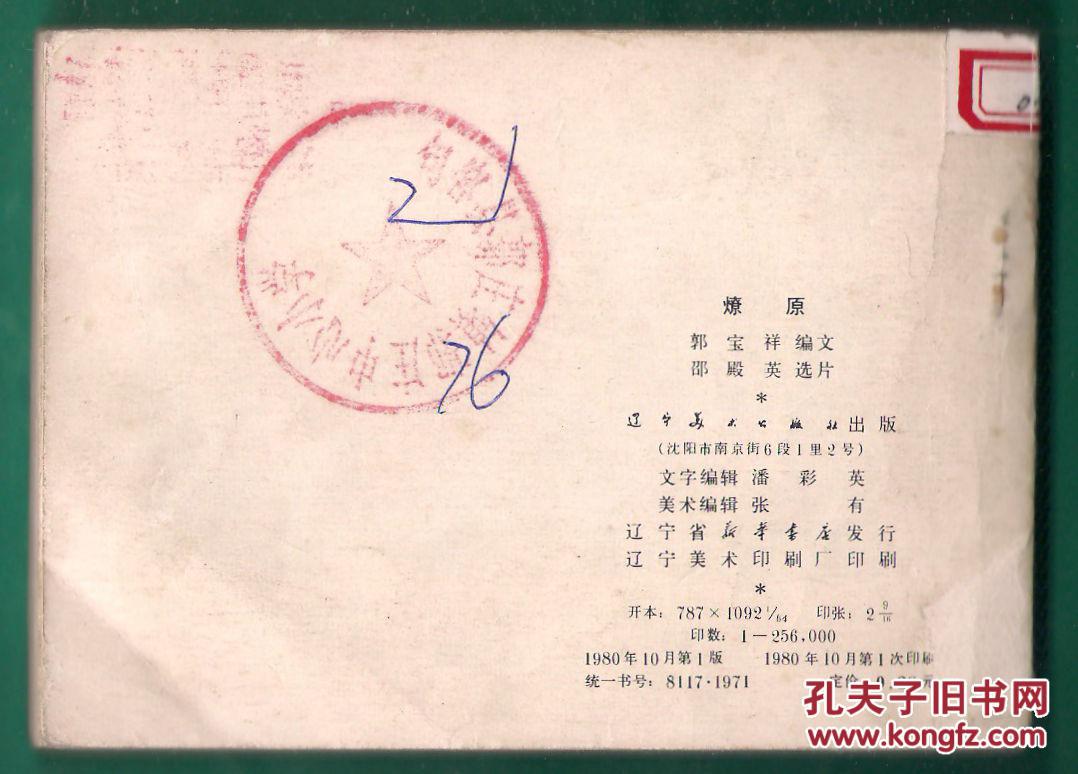 21
76
燎 原
郭 宝 祥 编文
邵 殿 英 选片
*
辽宁美术出版社出版
(沈阳市南京街6段1里2号)
文字编辑 潘 彩 英
美术编辑 张 有
辽宁省新华书店发行
辽宁美术印刷厂印刷
*
开本: 787×1092 1/64 印张: 2 9/16
印数: 1—256,000
1980年10月第1版 1980年10月第1次印刷
统一书号: 8117·1971 定价
孔夫子旧书网
www.kongfz.com